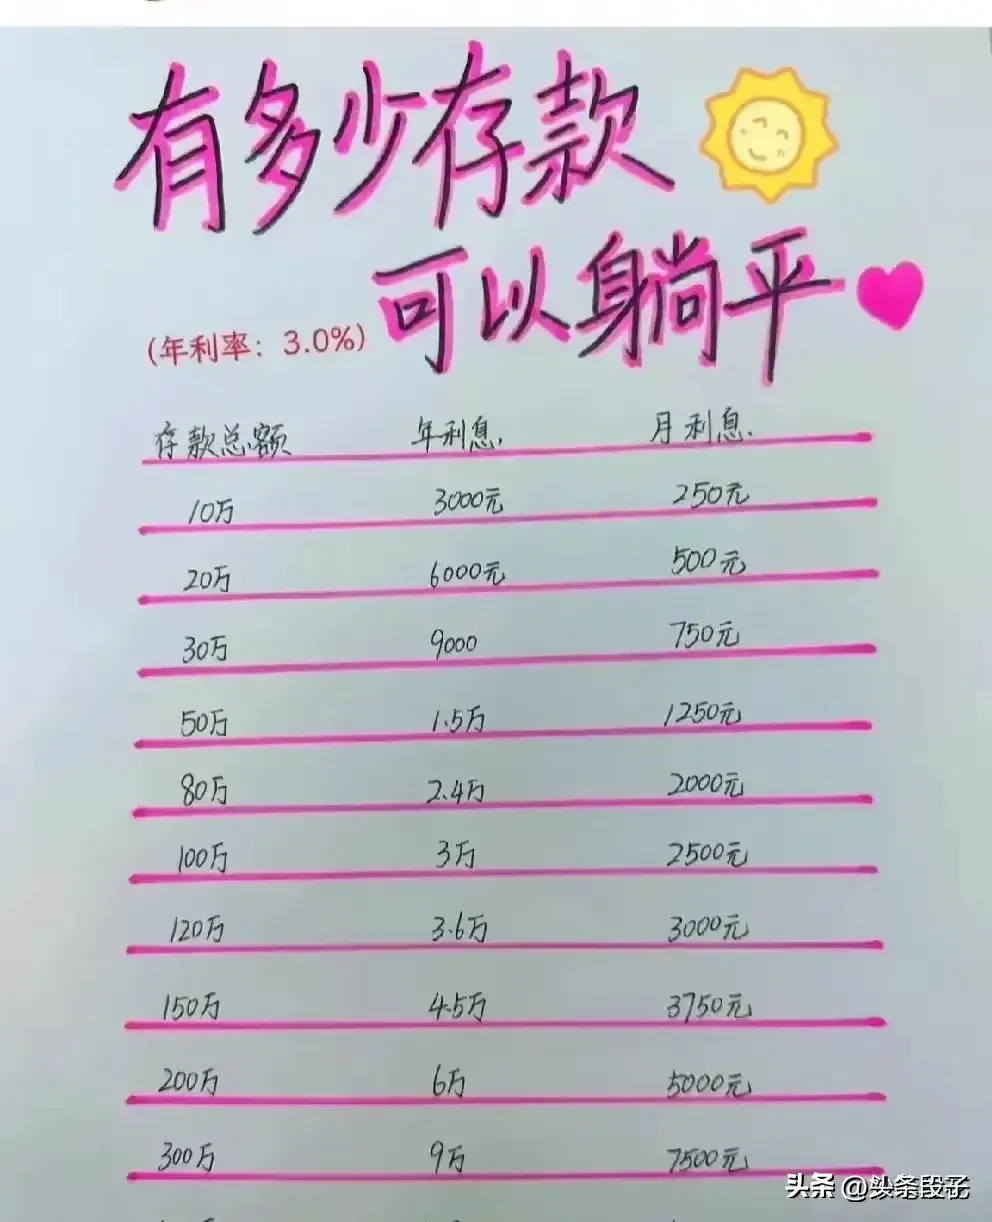 有多少存款
可以躺平
(年利率：3.0%)
存款总额 年利息. 月利息.
10万 3000元 250元
20万 6000元 500元
30万 9000 750元
50万 1.5万 1250元
80万 2.4万 2000元
100万 3万 2500元
120万 3.6万 3000元
150万 4.5万 3750元
200万 6万 5000元
300万 9万 7500元
头条 @头条段子